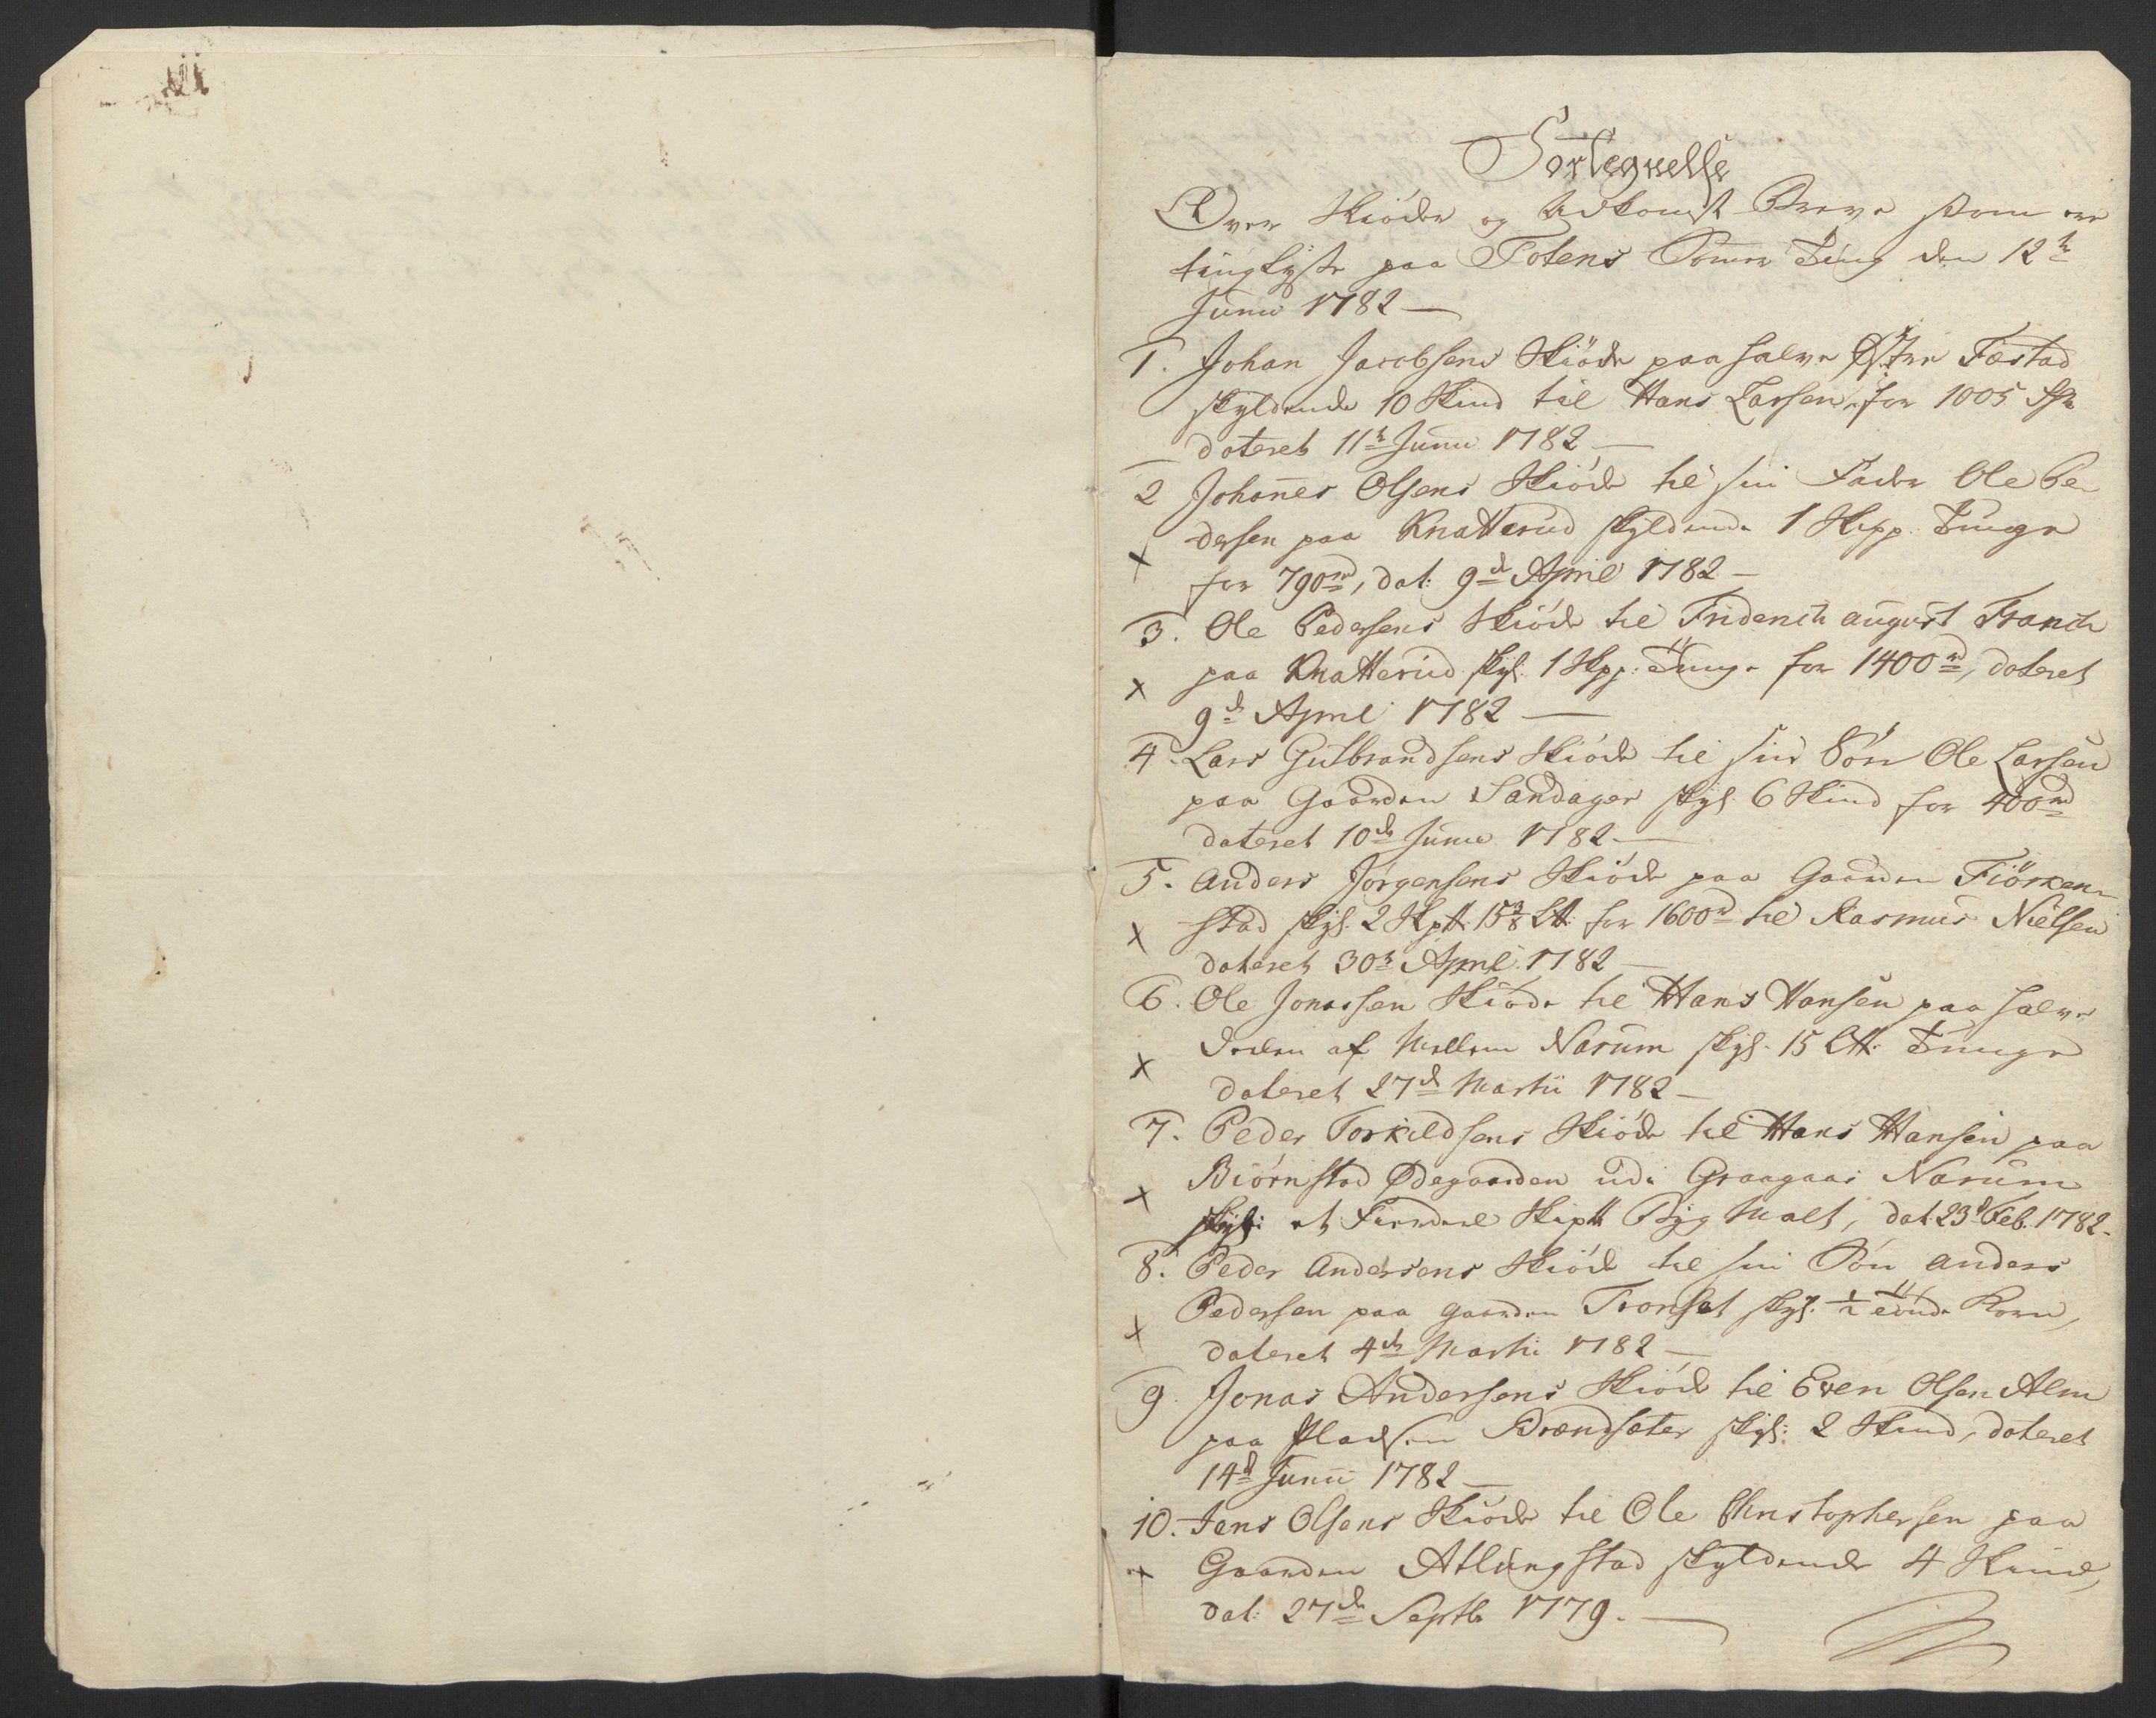 Fortegnelse
Over Skiöder og Adkomst Breve som ere
tinglyste paa Totens Somer Ting den 12te
Junii 1782 —
1. Johan Jacobsens Skiöde paa halve Østre Fæstad
skyldende 10 Skind til Hans Larsen, for 1005
dateret 11te Junii 1782 —
2 Johanes Olsens Skiöde til sin Fader Ole Pe
dersen paa Knatterud skyldende 1 Skpp. Tunge
x
for 790rd, dat: 9de April 1782 —
3. Ole Pedersens Skiöde til Friderich august Franck
paa Knatterud skyl. 1 Skpp: Tunge for 1400rd, dateret
x
9de April 1782 —
4. Lars Gulbrandsens Skiöde til sin Sön Ole Larsen
paa Gaarden Sandager skyl. 6 Skind for 400rd
dateret 10de Junii 1782 —
5. Anders Jörgensens Skiöde paa Gaarden Fiörken-
x stad skyl. 2 Skptt. 15 3/8 Ltt: for 1600rd til Rasmus Nielsen
dateret 30te April 1782 —
6. Ole Jonassen Skiöde til Hans Hansen paa halve
x Deelen af Mellem Narum skyl. 15 Ltt: Tunge
dateret 27de Martii 1782 —
7. Peder Torkildsens Skiöde til Hans Hansen paa
x Biörnstad Ødegaarden udi Graagaas Narum
skyl: et Fierdeel Skiptt Byg Malt, dat. 23d Feb. 1782.
8. Peder Andersens Skiöde til sin Sön Anders
x Pedersen paa gaarden Tronset skyl. 1/2 Tönde Korn,
dateret 4de Martii 1782 —
9. Jonas Andersens Skiöde til Even Olsen Alm
paa Pladsen Brændsæter skyl: 2 Skind, dateret
14de Junii 1782 —
10. Jens Olsens Skiöde til Ole Christophersen paa
x Gaarden Atlungstad skyldende 4 Skind,
dat: 27de Septbr 1779. —